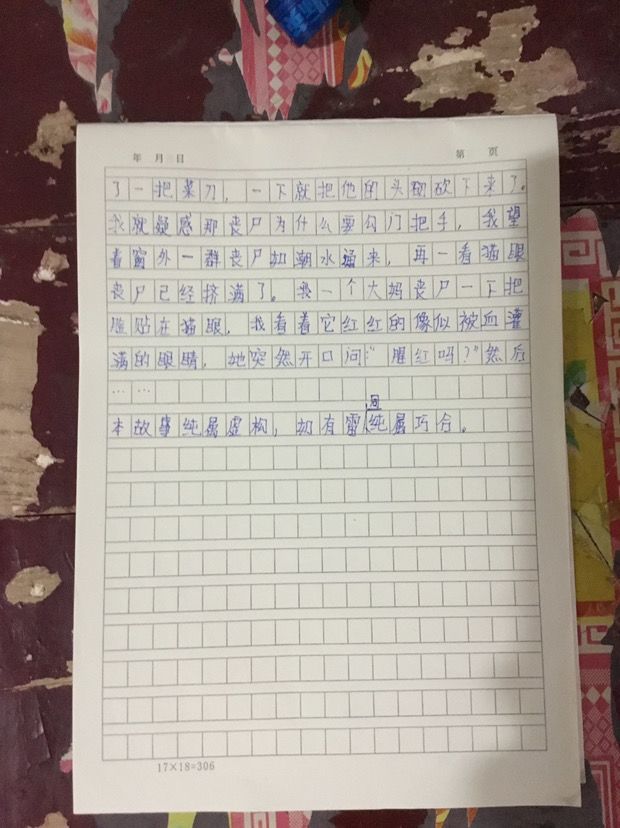 年 月 日
第 页
了一把菜刀，一下就把他的头砍下来了。
我就疑惑那丧尸为什么要勾门把手，我望
着窗外一群丧尸如潮水涌来，再一看猫眼
丧尸已经挤满了。一个大妈丧尸一下把
脸贴在猫眼，我看着它红红的像似被血灌
满的眼睛，她突然开口问："腥红吗？"然后
……
本故事纯属虚构，如有雷同，纯属巧合。
17×18=306